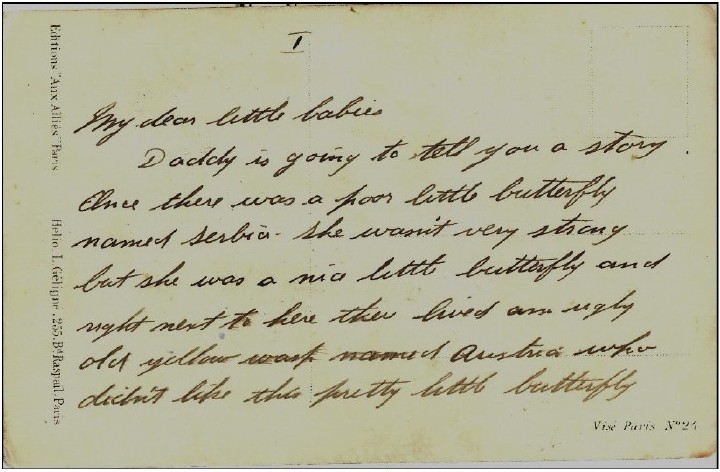 I
My dear little babies
Daddy is going to tell you a story
Once there was a poor little butterfly
named Serbia - she wasn't very strong
but she was a nice little butterfly and
right next to here ther lived an ugly
old yellow wasp named Austria who
didn't like this pretty little butterfly
Editions "Aux Alliés" Paris
Helio. L. Géligné, 255, Bd Raspail, Paris
Visé Paris No 24